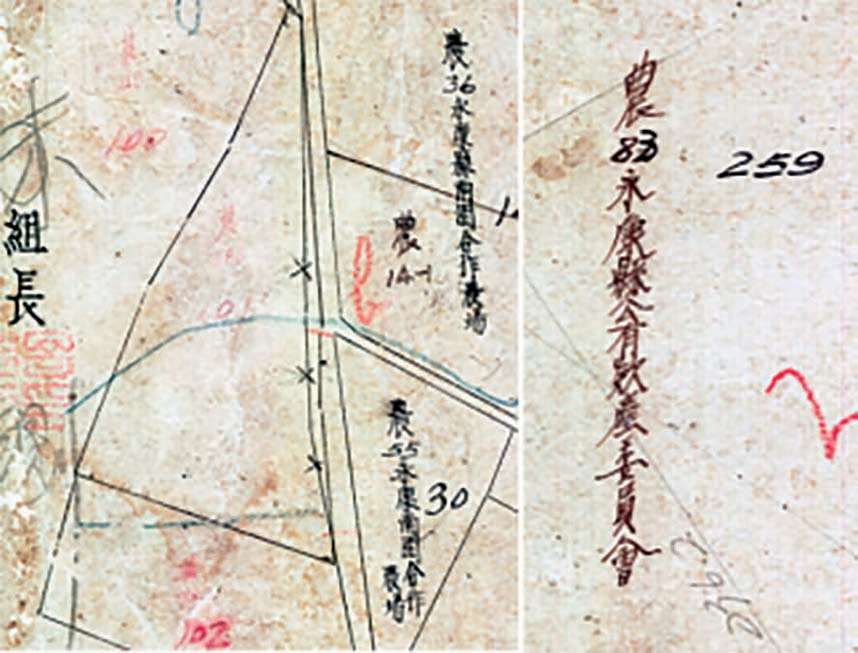 農
36
永康縣南園合作農場
農
14-1
農
55
永康南園合作
農場
30
組長
100
101
102
農
83
永康縣公有款產委員會
259